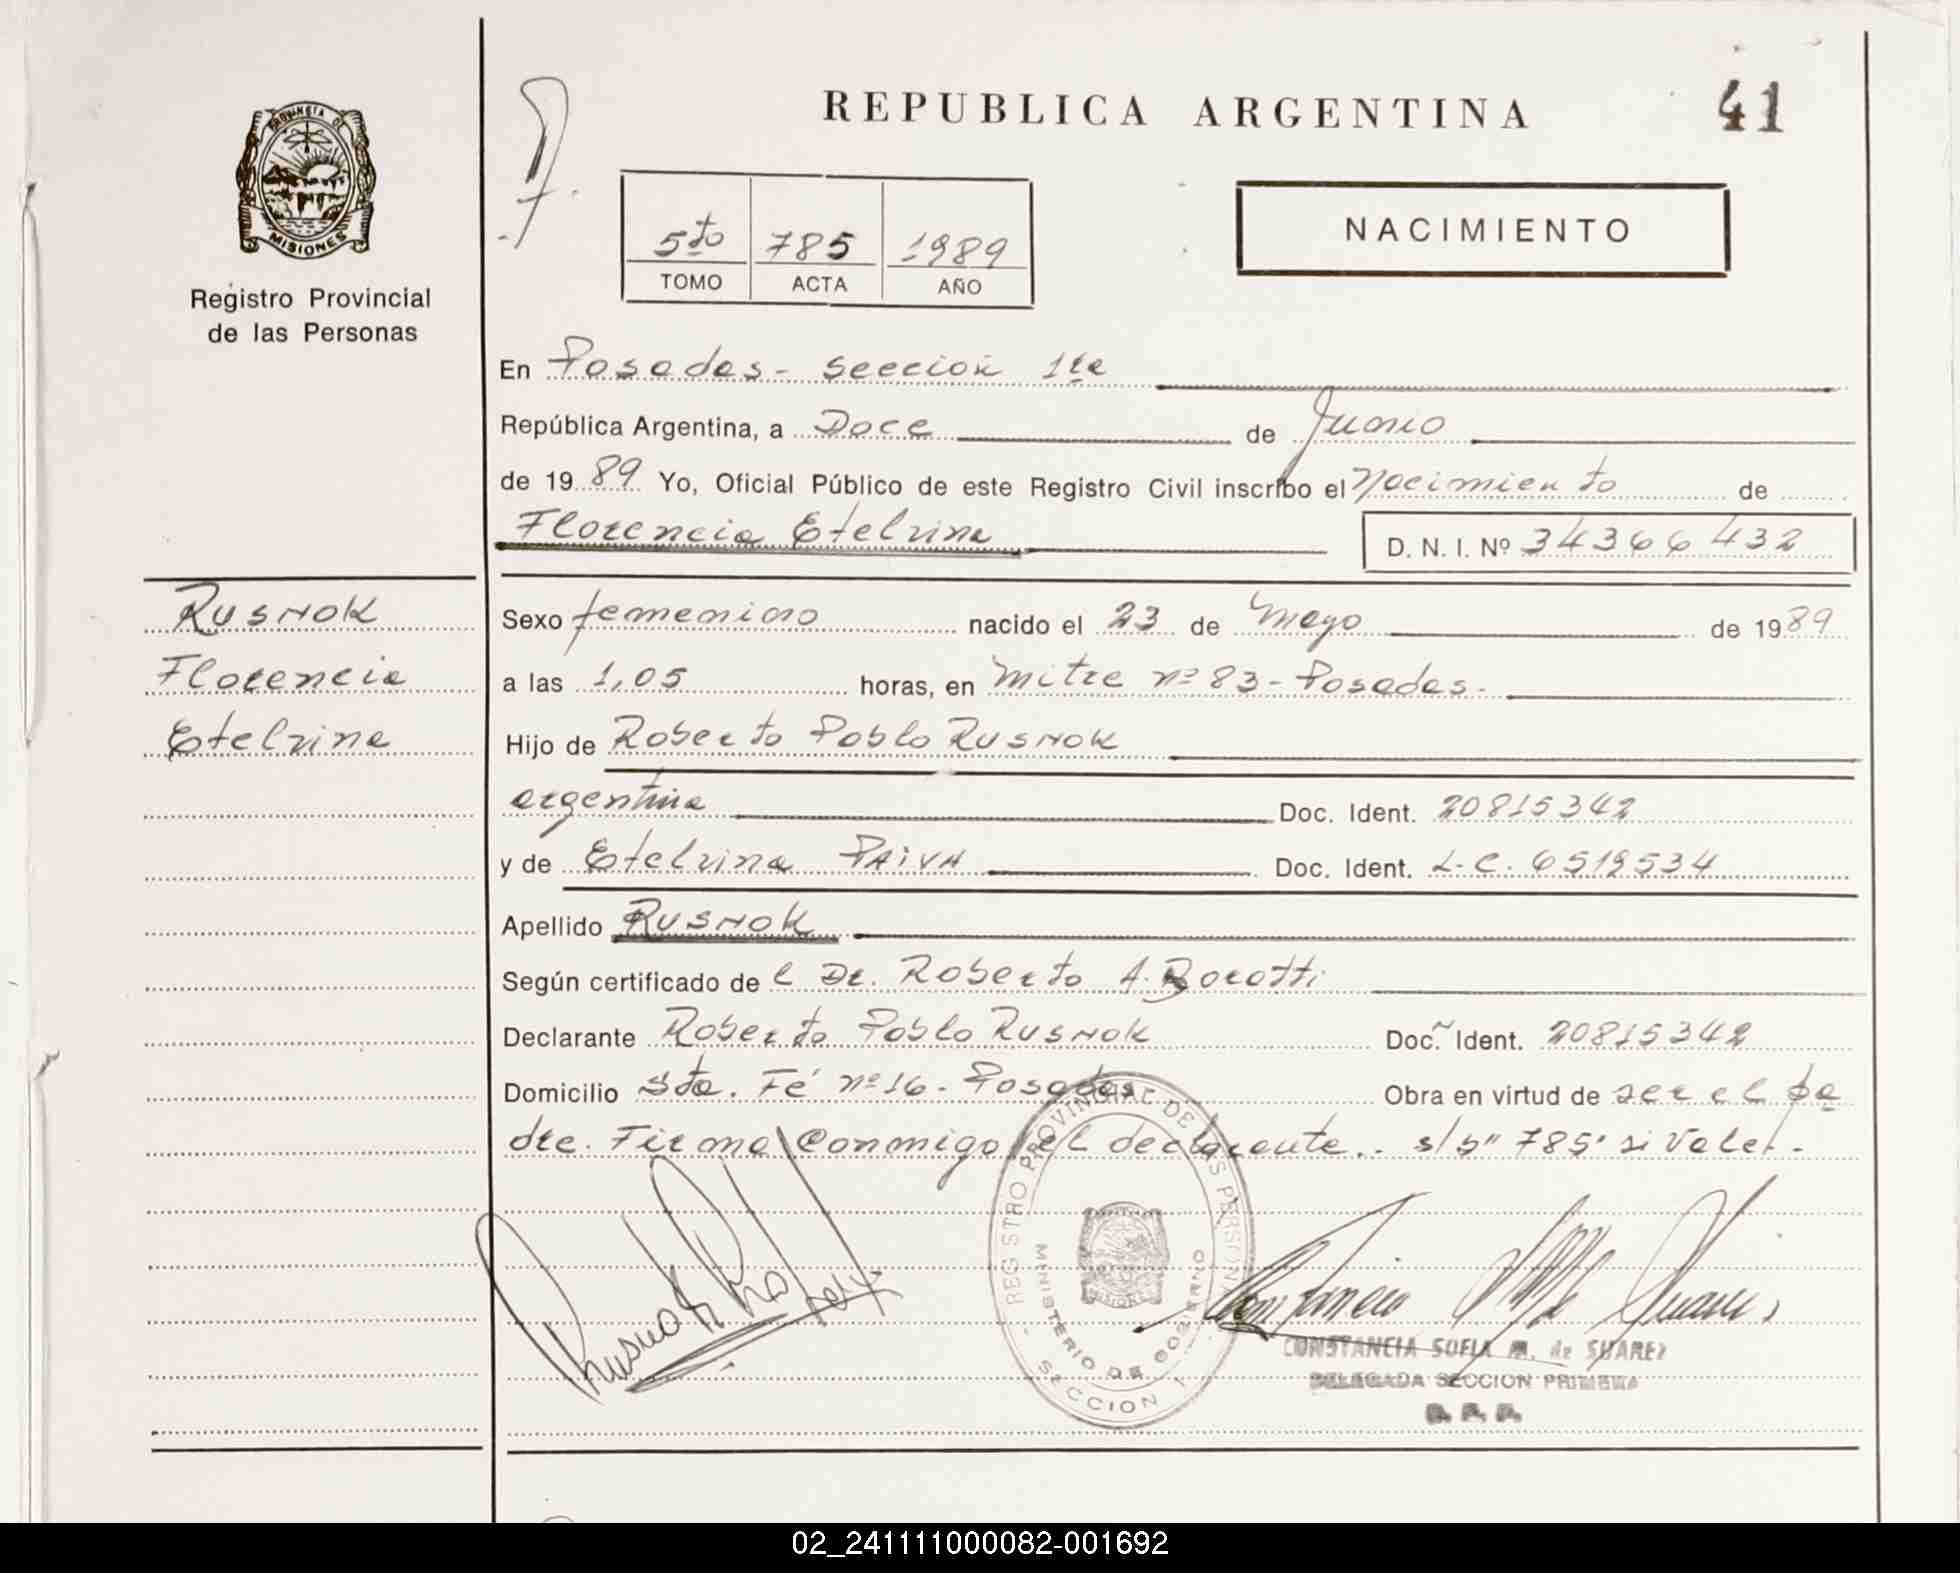 PROVINCIA DE
MISIONES
Registro Provincial
de las Personas
REPUBLICA ARGENTINA
41
5to 785 1989
TOMO ACTA AÑO
NACIMIENTO
En Posadas - Sección 1ra
República Argentina, a Doce de Junio
de 1989 Yo, Oficial Público de este Registro Civil inscribo el Nacimiento de
Florencia Etelvina
D. N. I. Nº 34366432
Rusnok
Florencia
Etelvina
Sexo femenino nacido el 23 de Mayo de 1989
a las 1,05 horas, en Mitre nº 83 - Posadas.
Hijo de Roberto Pablo Rusnok
argentina Doc. Ident. 20815342
y de Etelvina PAIVA Doc. Ident. L.C. 6519534
Apellido Rusnok
Según certificado de l Dr. Roberto A. Borotti
Declarante Roberto Pablo Rusnok Doc. Ident. 20815342
Domicilio Sta. Fé nº 16 - Posadas Obra en virtud de ser el pa
dre. Firma conmigo el declarante.. s/b" 785" si vale.-
REGISTRO PROVINCIAL DE LAS PERSONAS
MINISTERIO DE GOBIERNO
MISIONES
SECCION 1
CONSTANCIA SOFIA M. de SUAREZ
DELEGADA SECCION PRIMERA
02_241111000082-001692